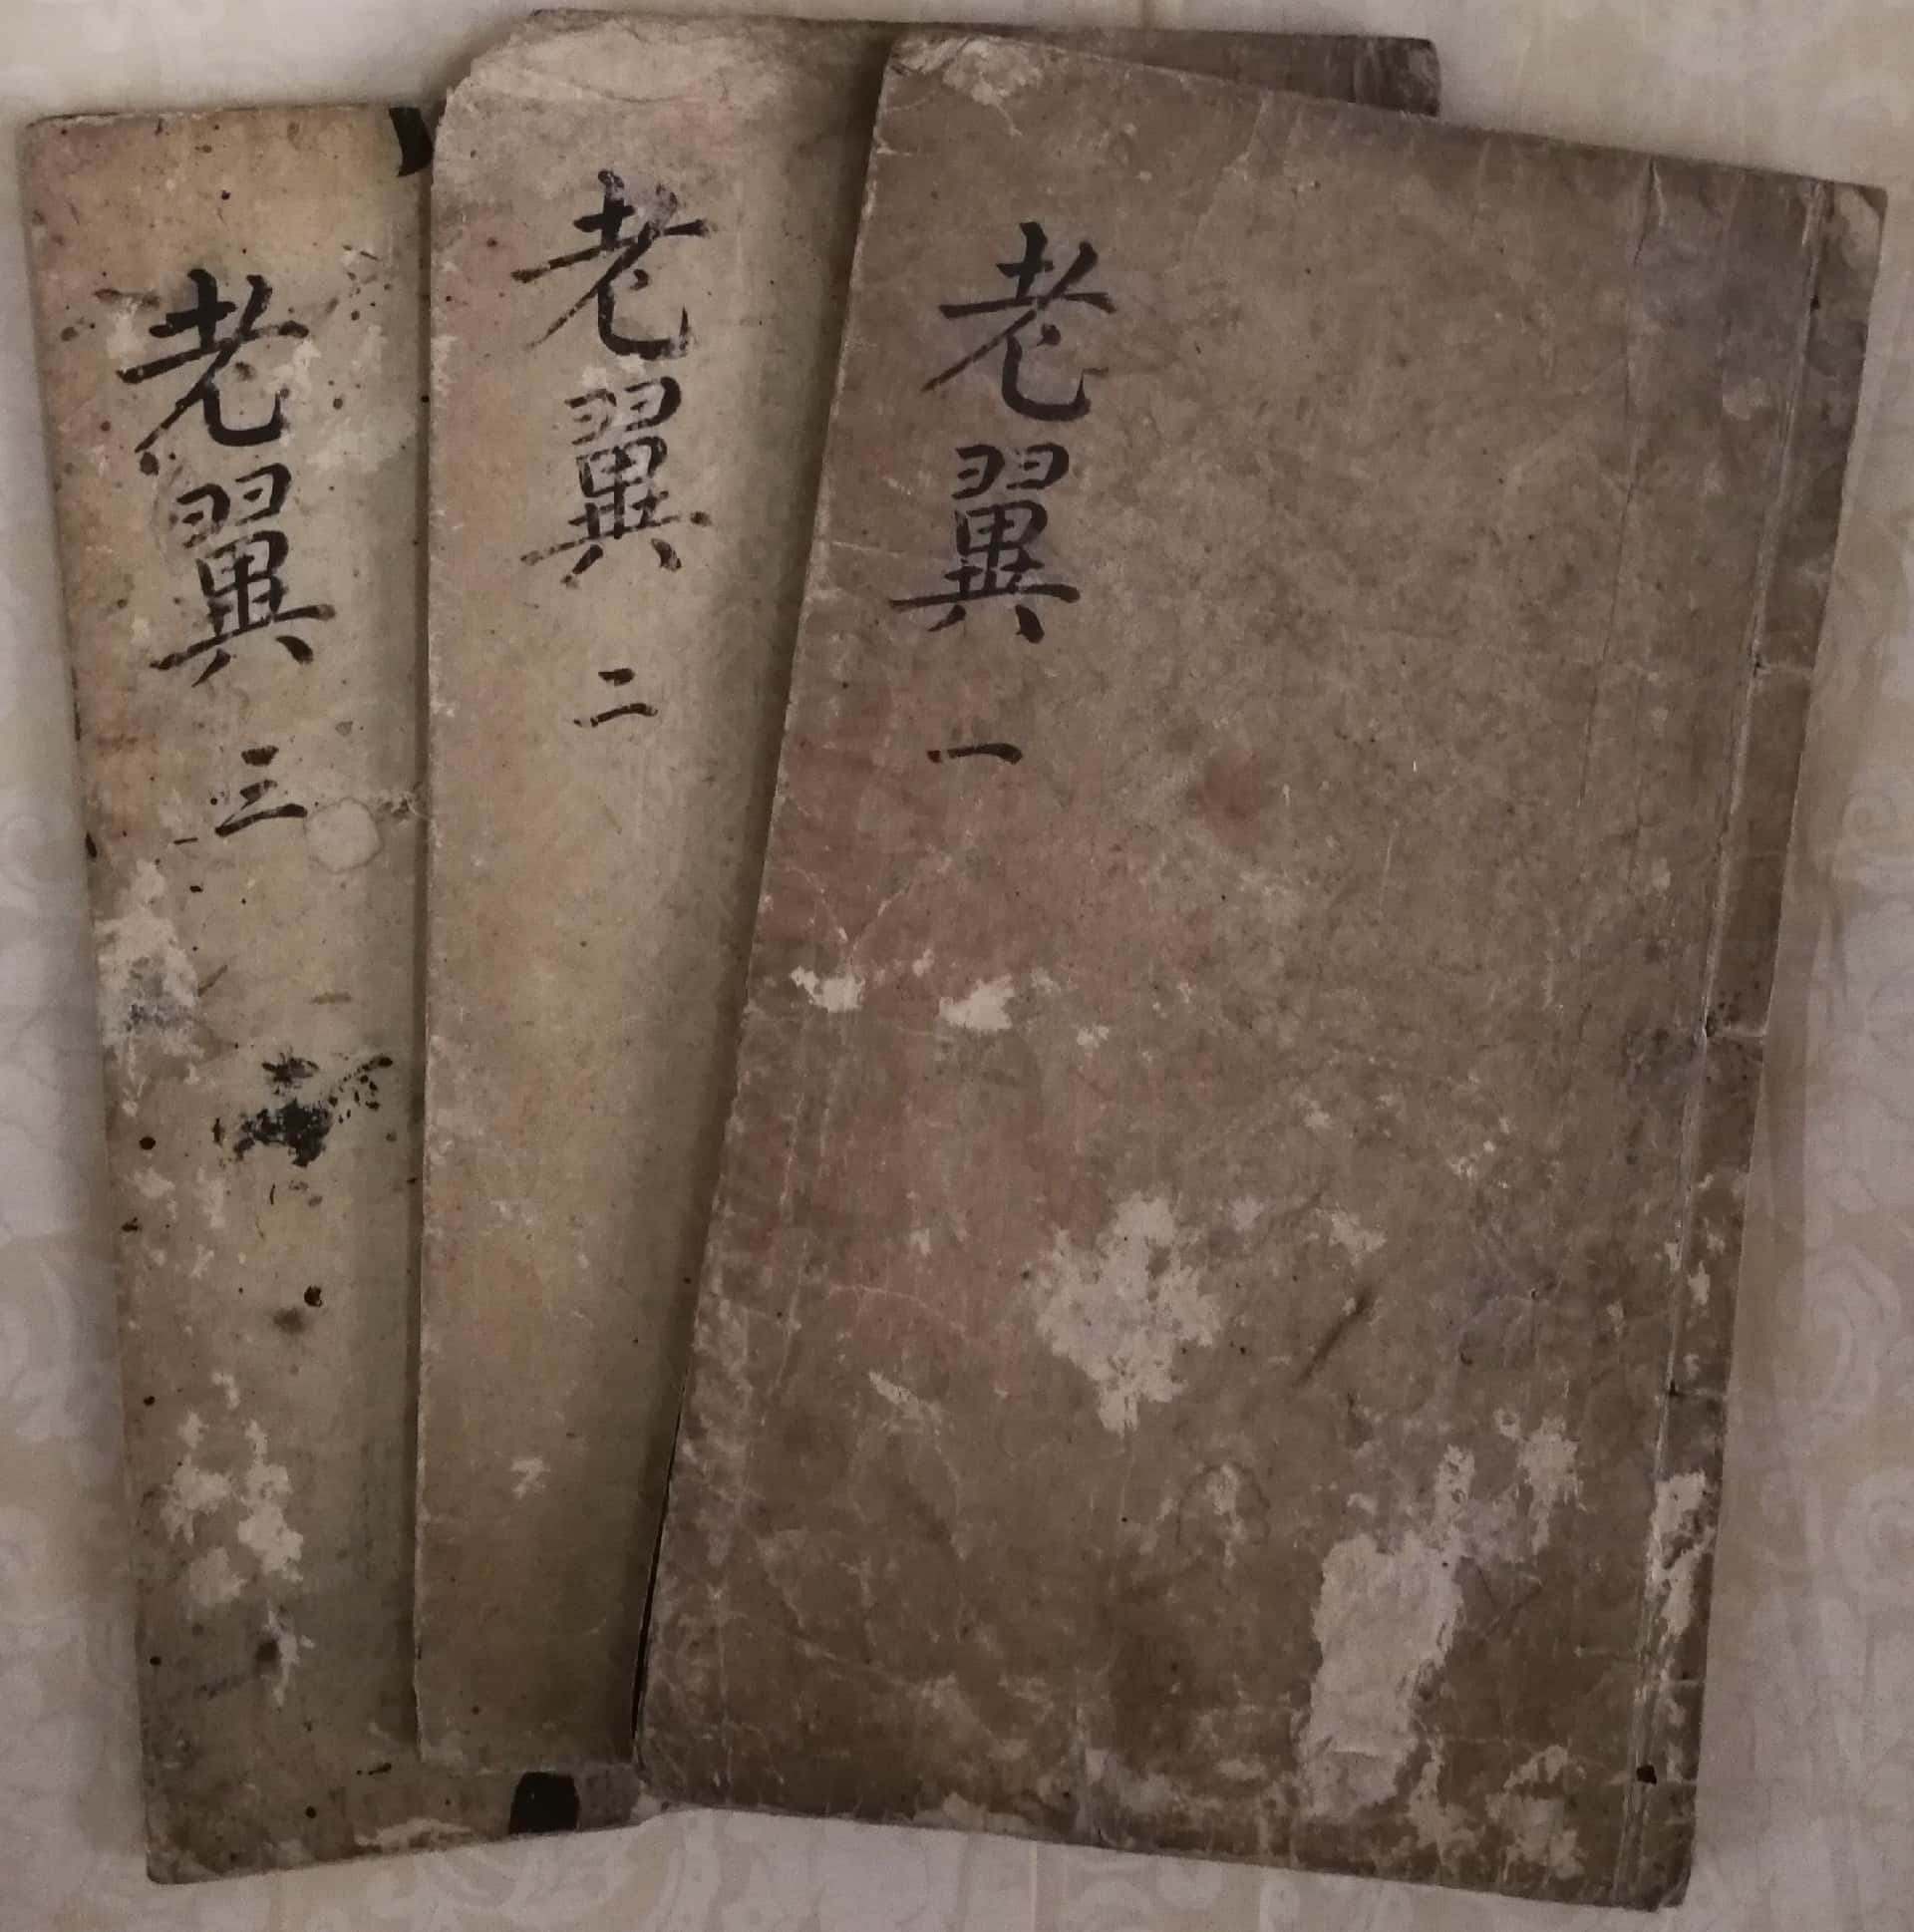 老翼 一
老翼 二
老翼 三